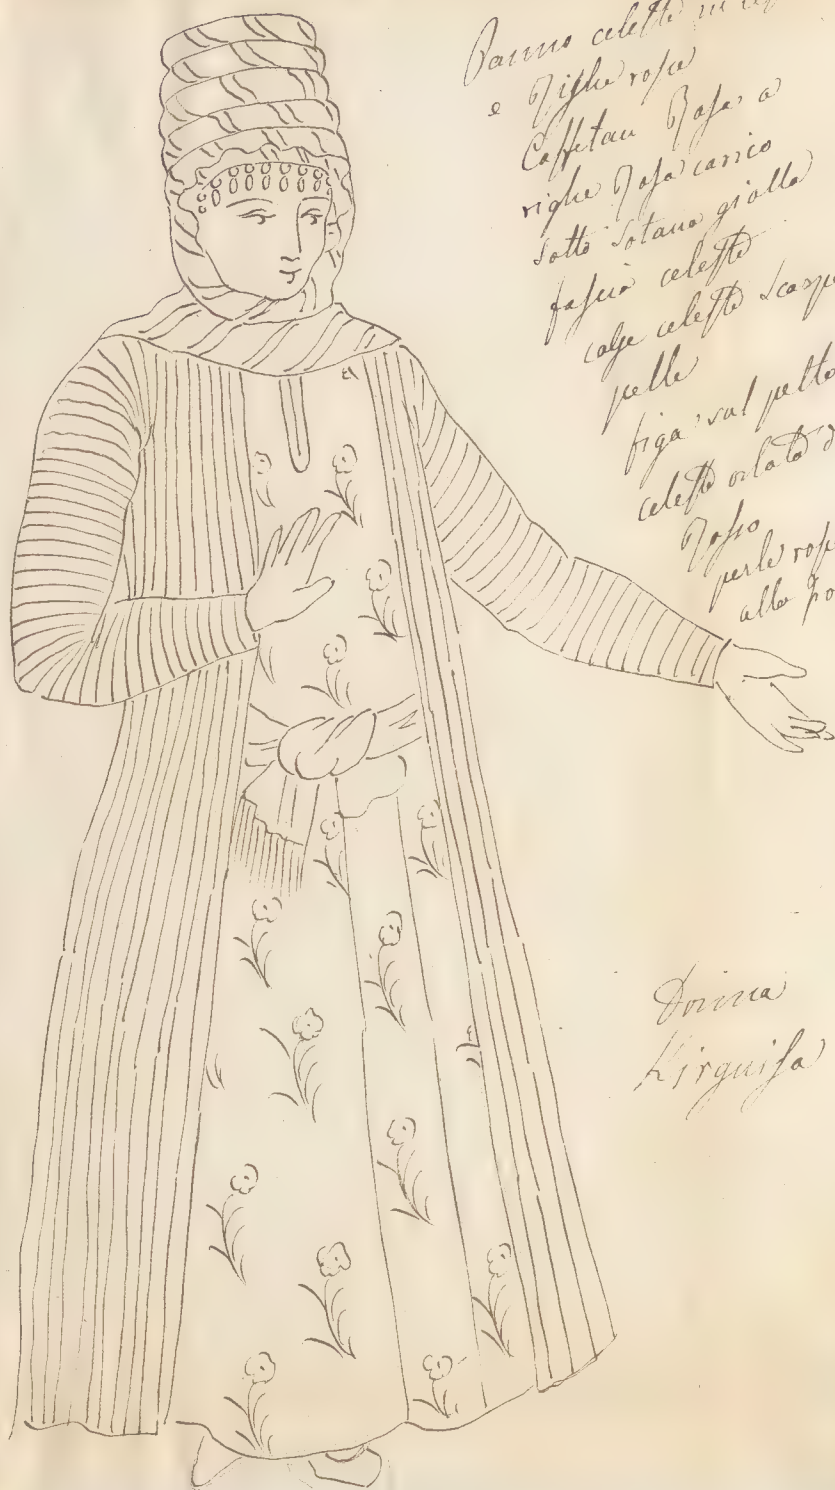 Panno celeste in
e Righe rosse
Caffetan Rosa a
righe Rosa carrico
sotto sotana gialla
fascia celeste
calze celeste scarpe
pelle
riga sul petto
celeste orlata d
Rosso
perle rosse
alla
Donna
Kirguisa